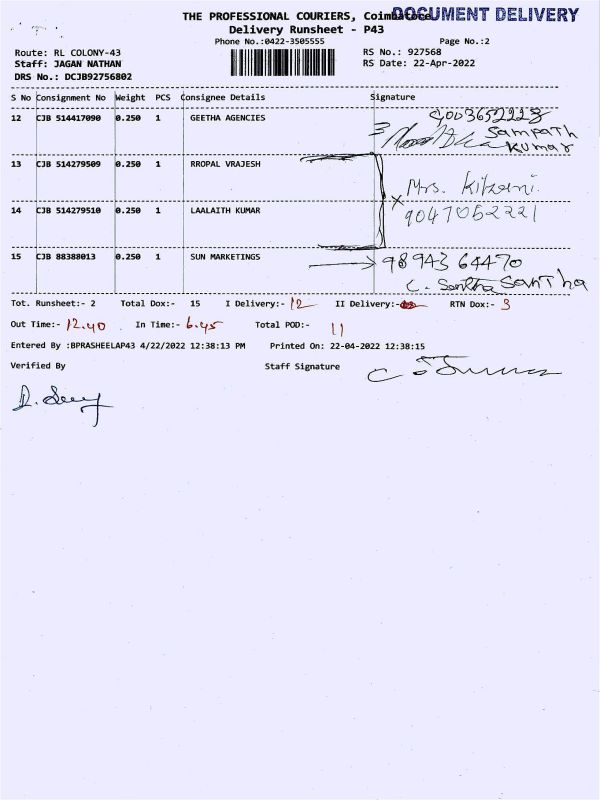 THE PROFESSIONAL COURIERS, Coimbatore
DOCUMENT DELIVERY
Delivery Runsheet - P43
Phone No.:0422-3505555
Page No.:2
Route: RL COLONY-43
RS No.: 927568
Staff: JAGAN NATHAN
RS Date: 22-Apr-2022
DRS No.: DCJB92756802
S No Consignment No Weight PCS Consignee Details Signature
12 CJB 514417090 0.250 1 GEETHA AGENCIES
Sampath
Kumar
13 CJB 514279509 0.250 1 RROPAL VRAJESH
Mrs.
14 CJB 514279510 0.250 1 LAALAITH KUMAR
15 CJB 88388013 0.250 1 SUN MARKETINGS 98943 64470
C. Santha SanTha
Tot. Runsheet:- 2 Total Dox:- 15 I Delivery:- 12 II Delivery:- RTN Dox:- 3
Out Time:- 12.40 In Time:- 6.45 Total POD:- 11
Entered By :BPRASHEELAP43 4/22/2022 12:38:13 PM Printed On: 22-04-2022 12:38:15
Verified By Staff Signature